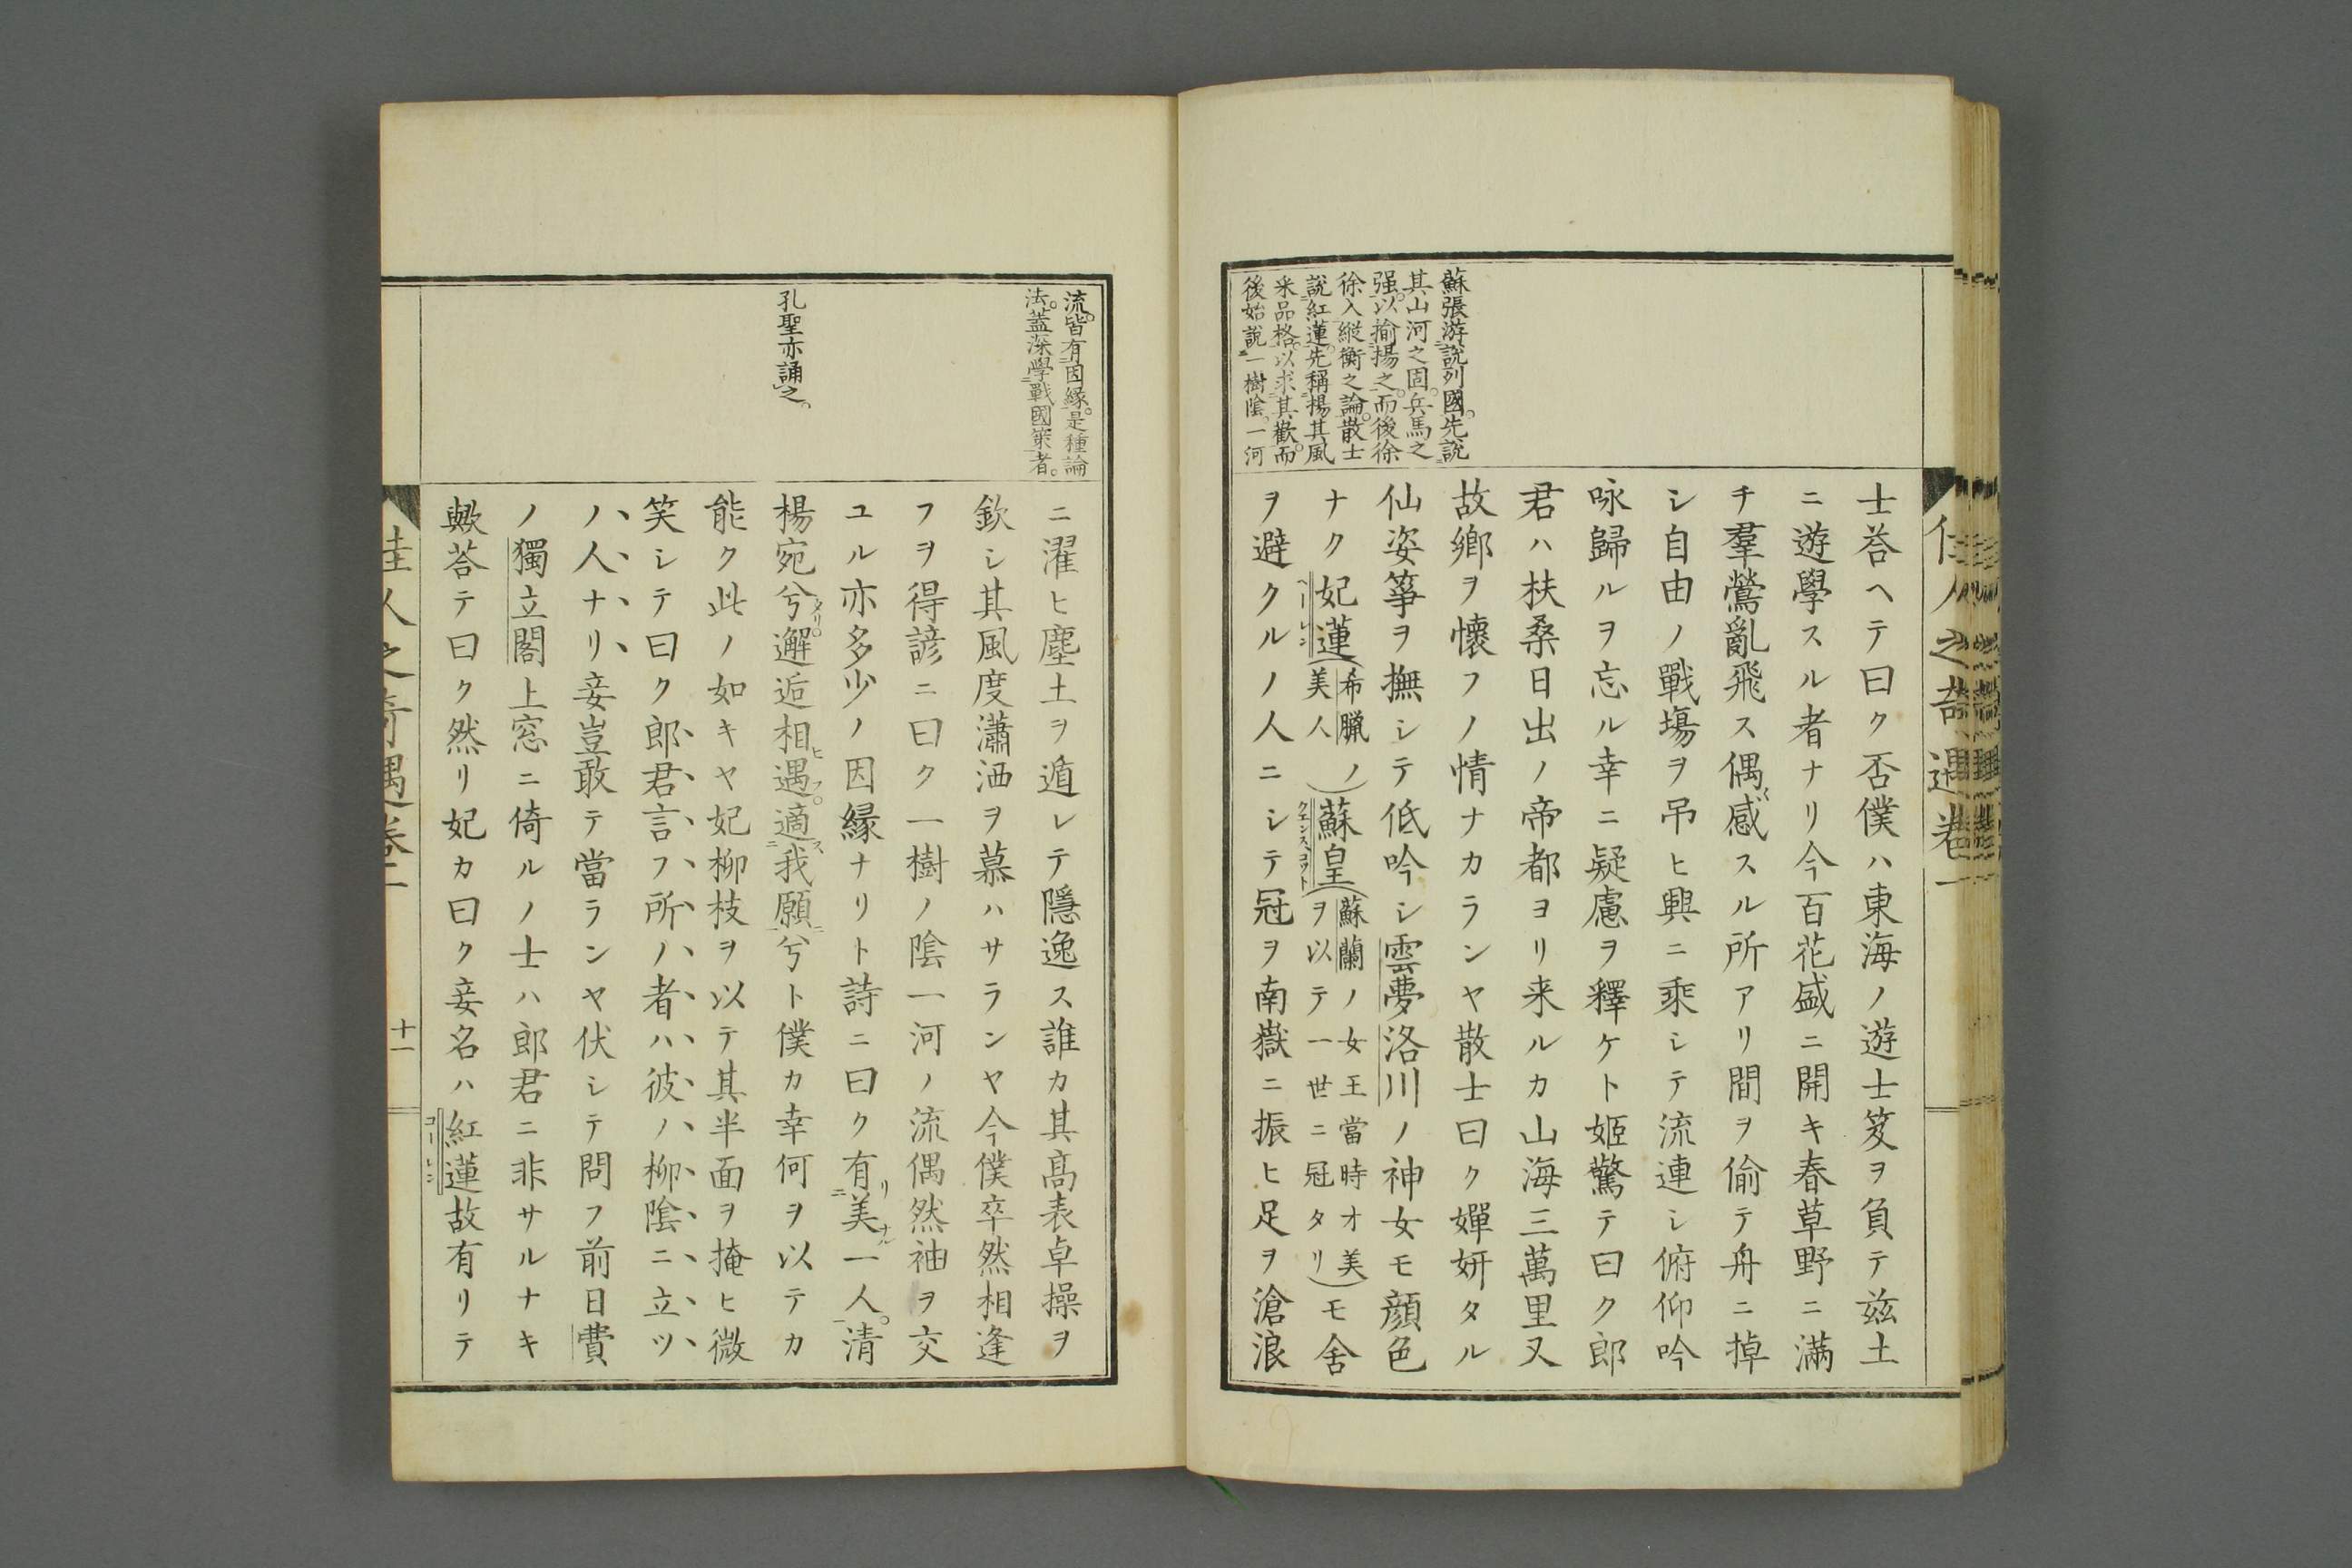 佳人之奇遇卷一
蘇張游說列國。先說
其山河之固。兵馬之
强。以揄揚之。而後徐
徐入縱衡之論。散士
說紅蓮。先稱揚其風
釆品格。以求其歡。而
後始說一樹陰。一河
士荅ヘテ曰ク否僕ハ東海ノ遊士笈ヲ負テ茲土
ニ遊學スル者ナリ今百花盛ニ開キ春草野ニ滿
チ羣鶯亂飛ス偶〻感スル所アリ間ヲ偷テ舟ニ掉
シ自由ノ戰塲ヲ吊ヒ興ニ乘シテ流連シ俯仰吟
咏歸ルヲ忘ル幸ニ疑慮ヲ釋ケト姬驚テ曰ク郎
君ハ扶桑日出ノ帝都ヨリ来ルカ山海三萬里又
故鄉ヲ懷フノ情ナカランヤ散士曰ク嬋妍タル
仙姿箏ヲ撫シテ低吟シ雲夢洛川ノ神女モ顏色
ナク妃蓮(希臘ノ美人)蘇皇(蘇蘭ノ女王當時才美ヲ以テ一世ニ冠タリ)モ舍
ヲ避クルノ人ニシテ冠ヲ南嶽ニ振ヒ足ヲ滄浪
流。皆有因緣。是種論
法。蓋深學戰國策者。
孔聖亦誦之。
ニ濯ヒ塵土ヲ遁レテ隱逸ス誰カ其高表卓操ヲ
欽シ其風度瀟洒ヲ慕ハサランヤ今僕卒然相逢
フヲ得諺ニ曰ク一樹ノ陰一河ノ流偶然袖ヲ交
ユル亦多少ノ因緣ナリト詩ニ曰ク有美一人。清
楊宛兮邂逅相遇適我願兮ト僕カ幸何ヲ以テカ
能ク此ノ如キヤ妃柳枝ヲ以テ其半面ヲ掩ヒ微
笑シテ曰ク郎君言フ所ノ者ハ彼ノ柳陰ニ立ツ
ノ人ナリ妾豈敢テ當ランヤ伏シテ問フ前日費
ノ獨立閣上窓ニ倚ルノ士ハ郎君ニ非サルナキ
歟荅テ曰ク然リ妃カ曰ク妾名ハ紅蓮故有リテ
佳人之奇遇卷一
十一